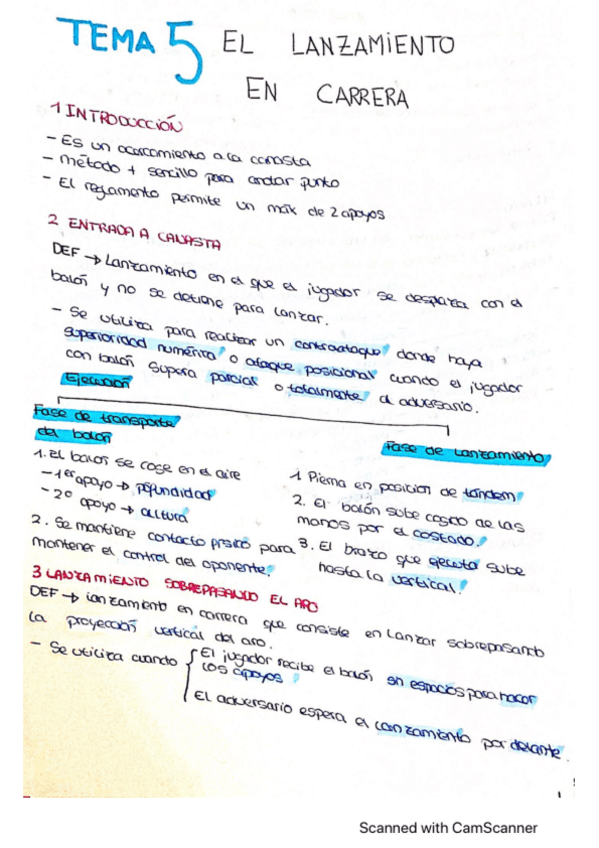 TEMA 5 EL LANZAMIENTO
EN CARRERA
1 INTRODUCCIÓN
- Es un acercamiento a la canasta
- método + sencillo para anotar punto
- El reglamento permite un máx de 2 apoyos
2 ENTRADA A CANASTA
DEF → Lanzamiento en el que el jugador se desplaza con el
balón y no se detiene para lanzar.
- Se utiliza para realizar un contraataque donde haya
superioridad numérica o ataque posicional cuando el jugador
con balón supera parcial o totalmente al adversario.
Ejecución
Fase de transporte
del balón
1. El balón se coge en el aire
- 1er apoyo → profundidad
- 2º apoyo → altura
2. Se mantiene contacto físico para
mantener el control del oponente.
Fase de Lanzamiento
1. Pierna en posición de tándem
2. El balón sube cogido de las
manos por el costado.
3. El brazo que ejecuta sube
hasta la vertical.
3 LANZAMIENTO SOBREPASANDO EL ARO
DEF → Lanzamiento en carrera que consiste en Lanzar sobrepasando
la proyección vertical del aro.
- Se utiliza cuando
El jugador recibe el balón sin espacios para hacer
los apoyos
El adversario espera el lanzamiento por delante.
1
Scanned with CamScanner